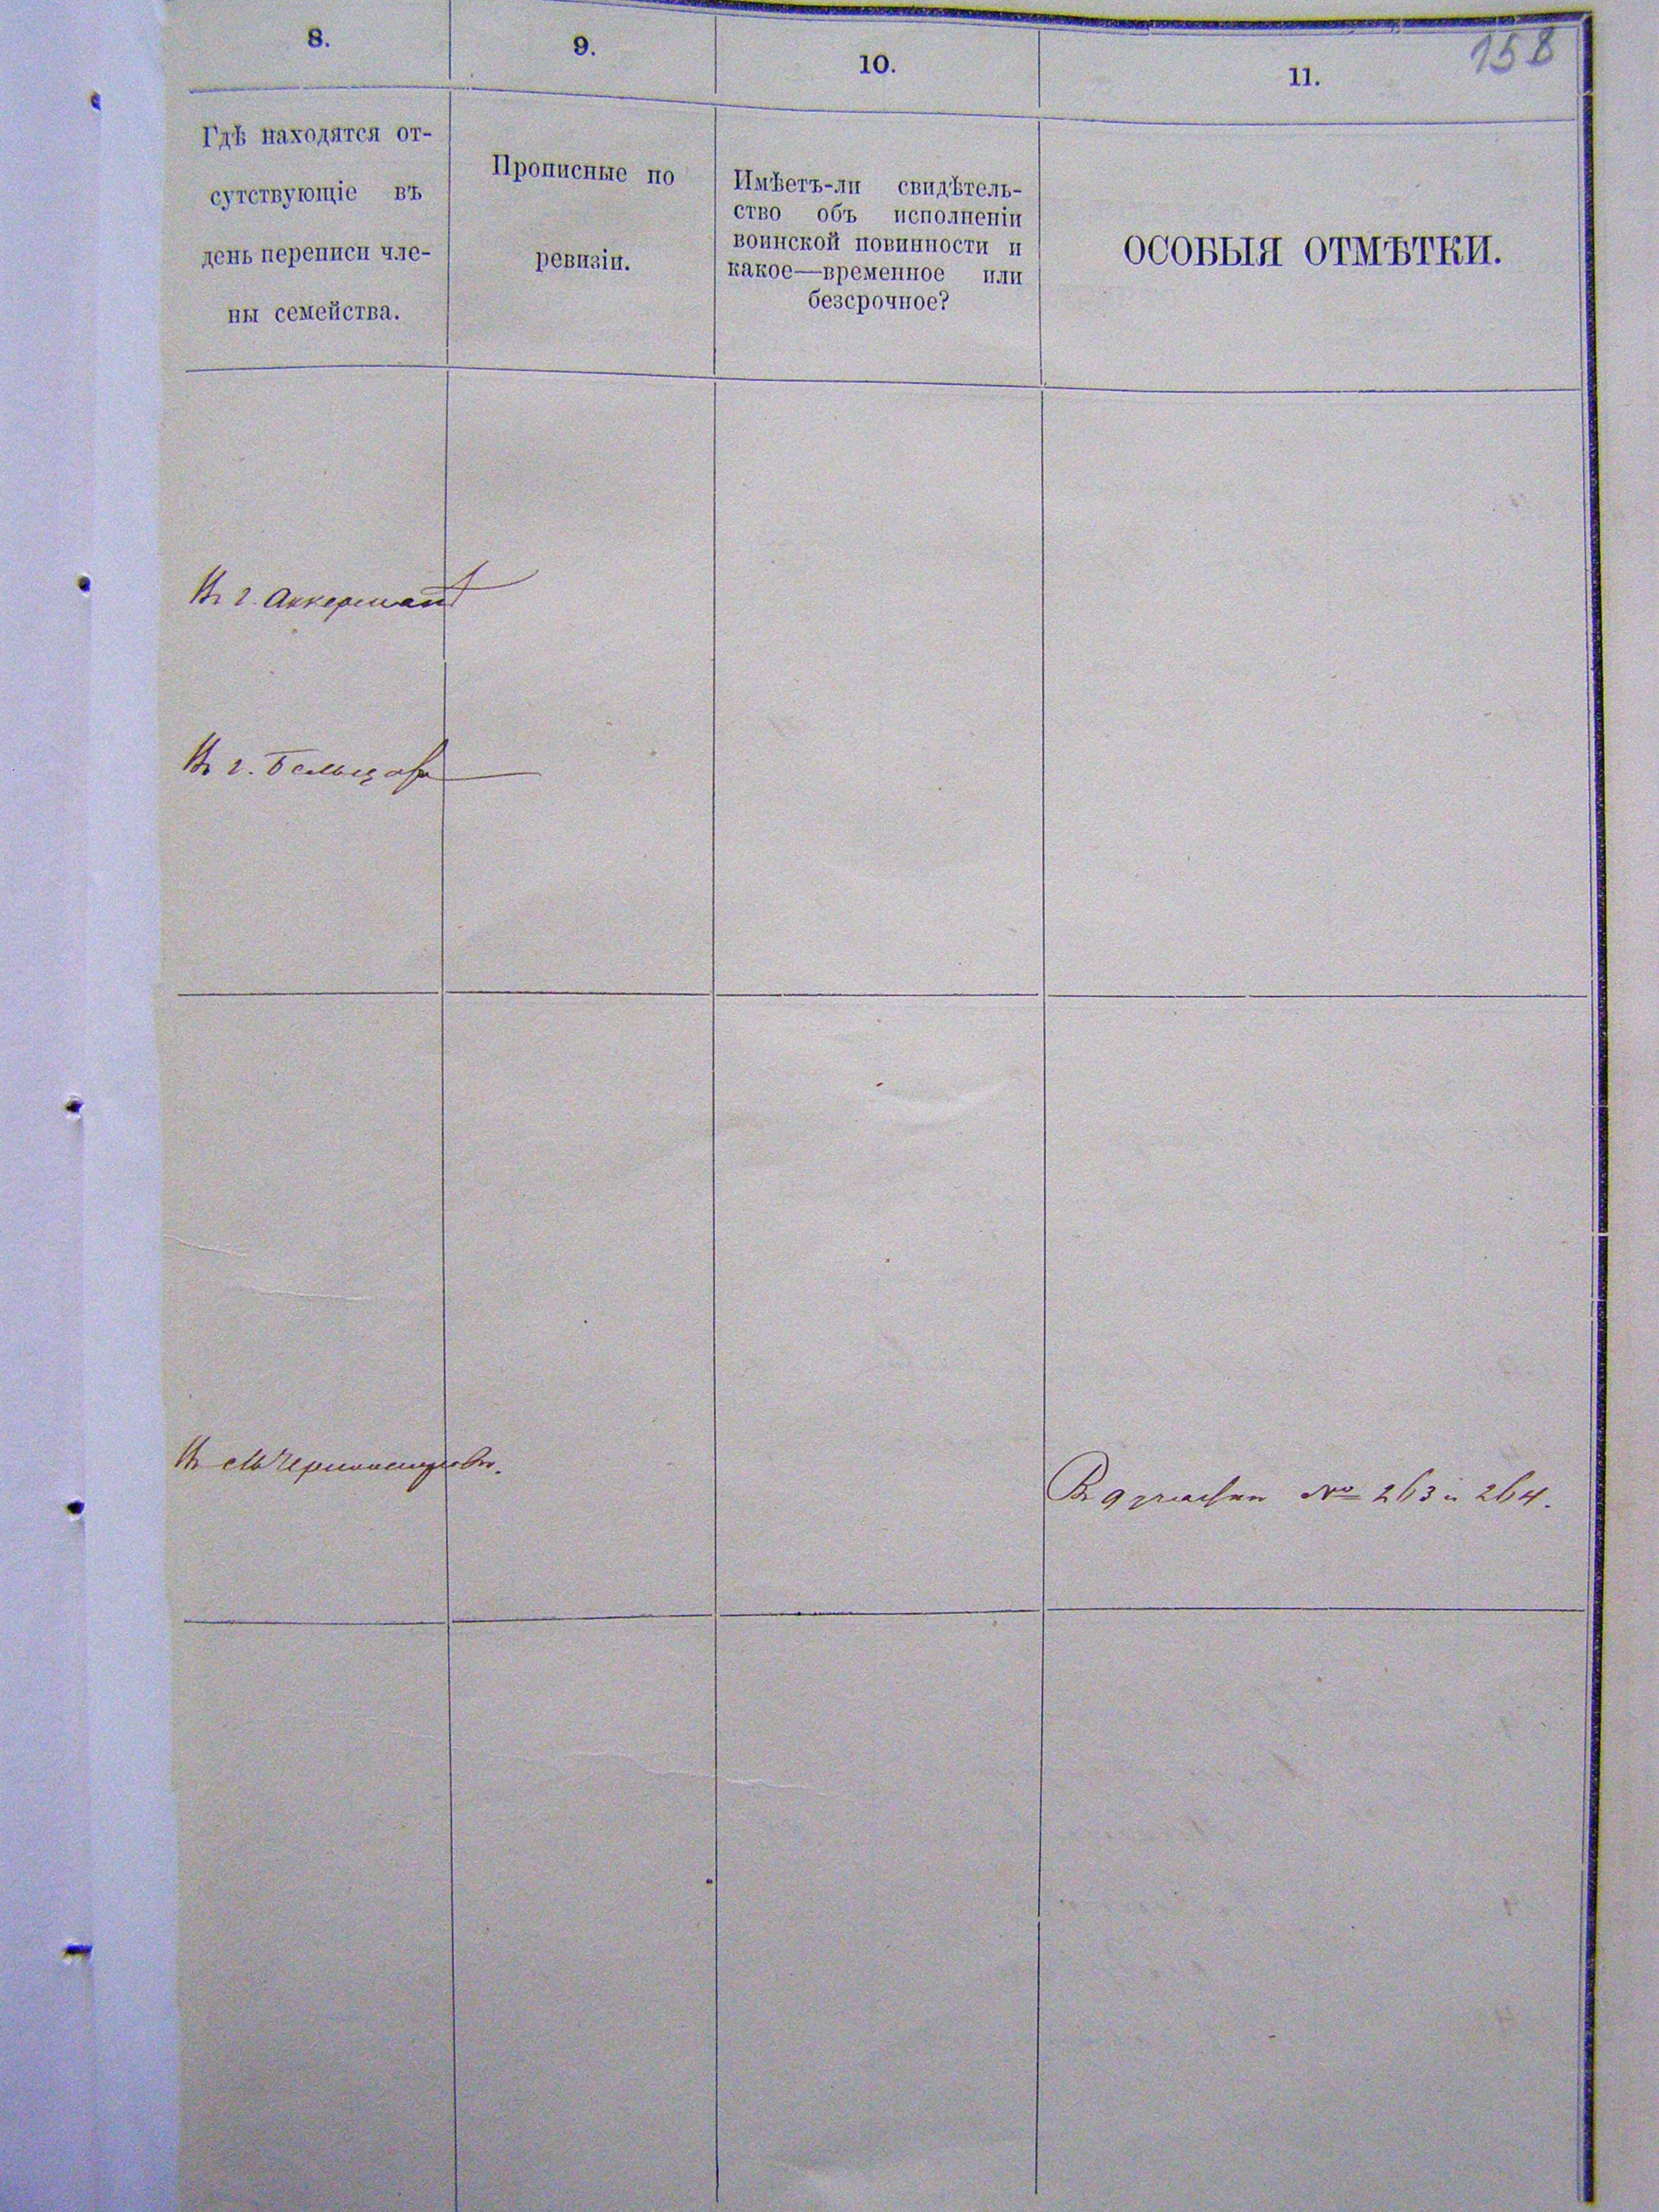 158
8.
9.
10.
11.
Гдѣ находятся от-
сутствующіе въ
день переписи чле-
ны семейства.
Прописные по
ревизіи.
Имѣетъ-ли свидѣтель-
ство объ исполненіи
воинской повинности и
какое—временное или
безсрочное?
ОСОБЫЯ ОТМѢТКИ.
Въ г. Аккерманѣ
Въ г. Бельцахъ
Въ
№ 263 и 264.